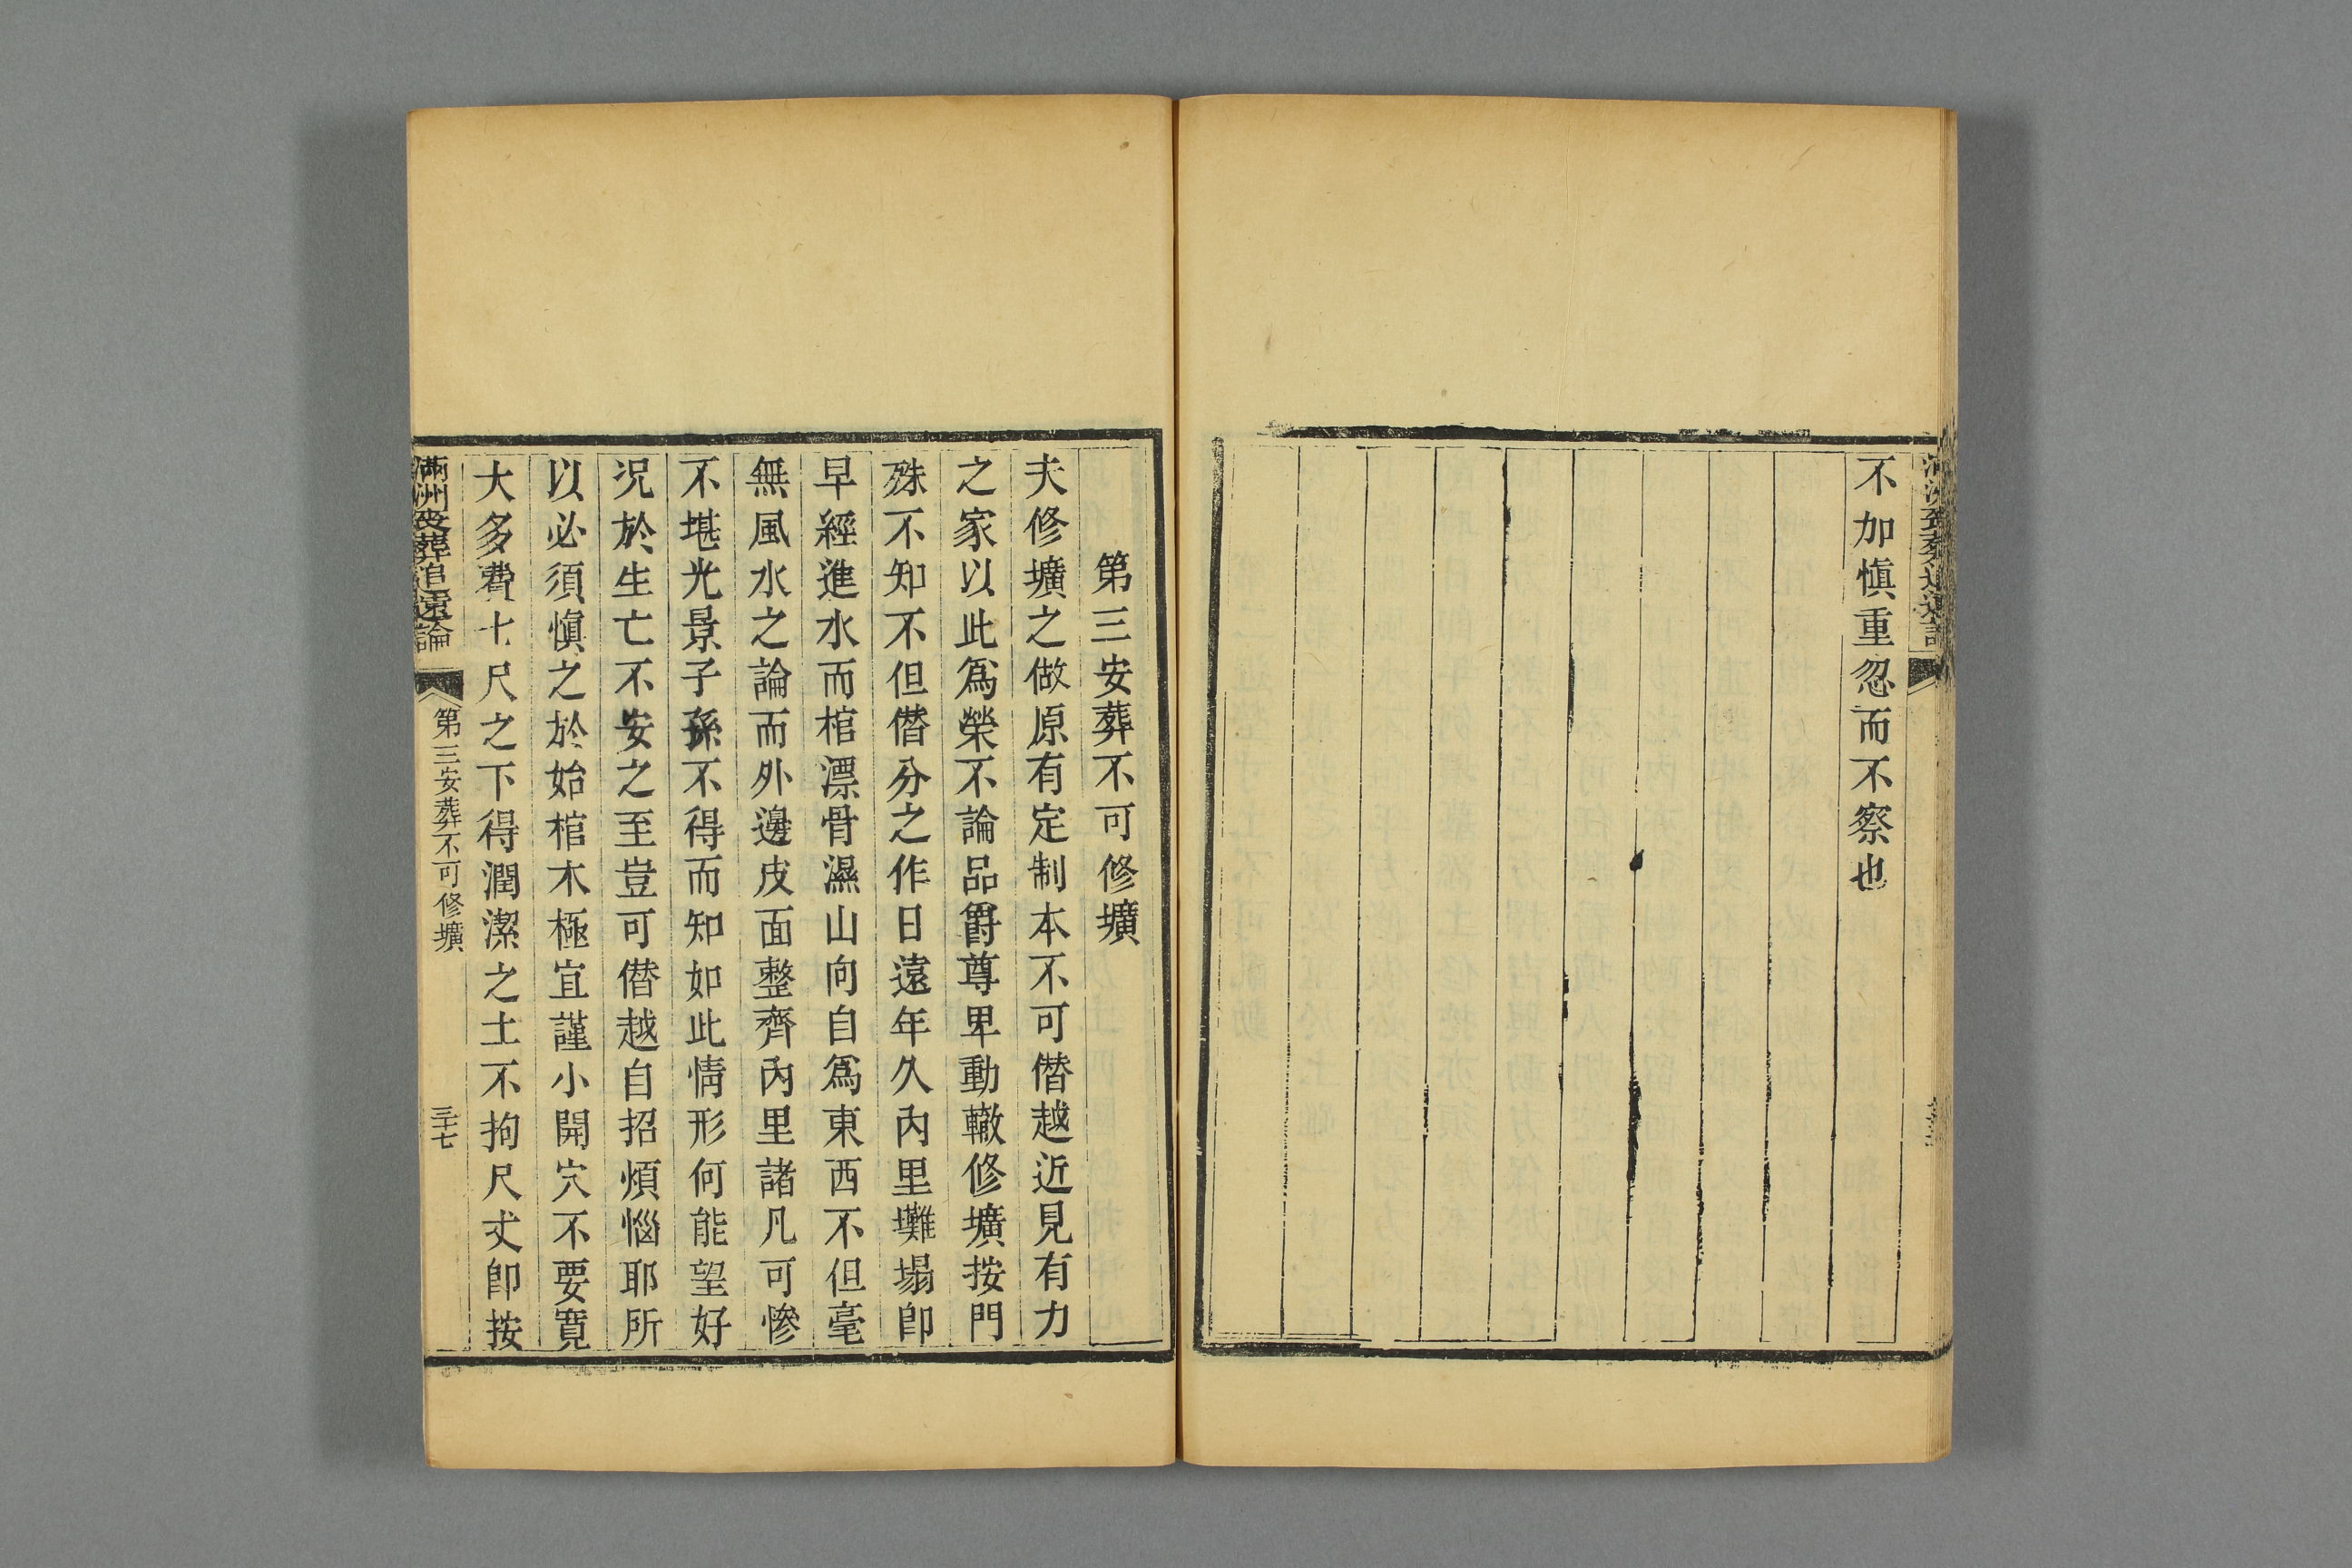 不加慎重忽而不察也
第三安葬不可修壙
夫修壙之做原有定制本不可僭越近見有力
之家以此爲榮不論品爵尊卑動轍修壙按門
殊不知不但僭分之作日遠年久內里壩塌卽
早經進水而棺漂骨濕山向自爲東西不但毫
無風水之論而外邊皮面整齊內里諸凡可慘
不堪光景子孫不得而知如此情形何能望好
况於生亡不安之至豈可僭越自招煩惱耶所
以必須慎之於始棺木極宜謹小開穴不要寬
大多費十尺之下得潤潔之土不拘尺丈卽按
滿洲發葬追遠論
第三安葬不可修壙
三十七